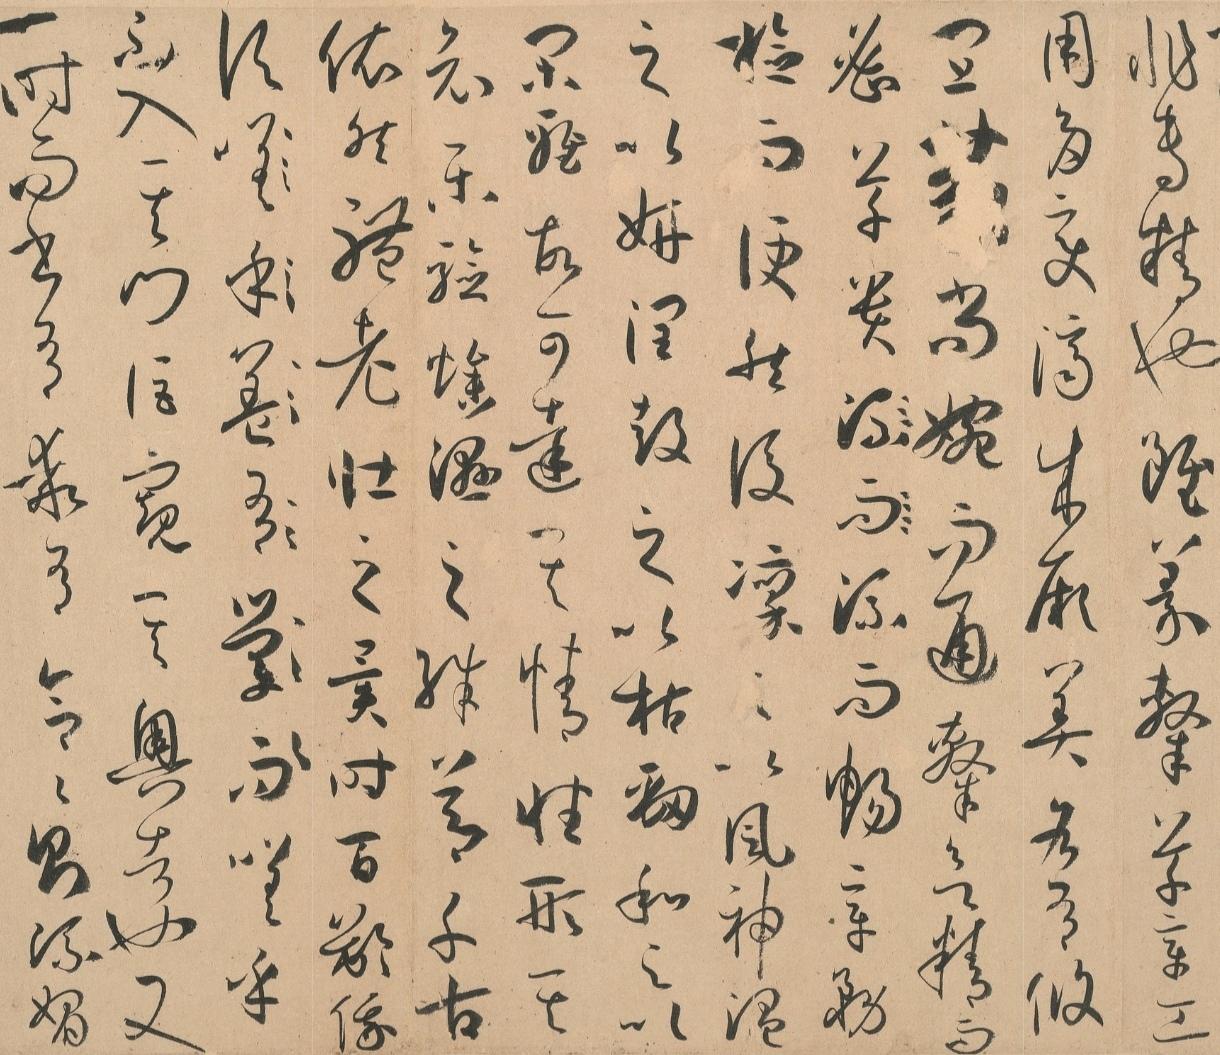 非專精也雖篆隸草章工
用多變濟成厥美各有攸
宜篆尚婉而通隸欲精而
密草貴流而流而暢章務
檢而便然後凜之以風神溫
之以妍潤鼓之以枯勁和之以
閑雅故可達其情性形其
哀樂驗燥濕之殊節千古
依然體老壯之異時百齡俄
頃嗟乎蓋有學而嗟乎
不入其門詎窺其奧者也又
一時而書有乖有合合則流媚